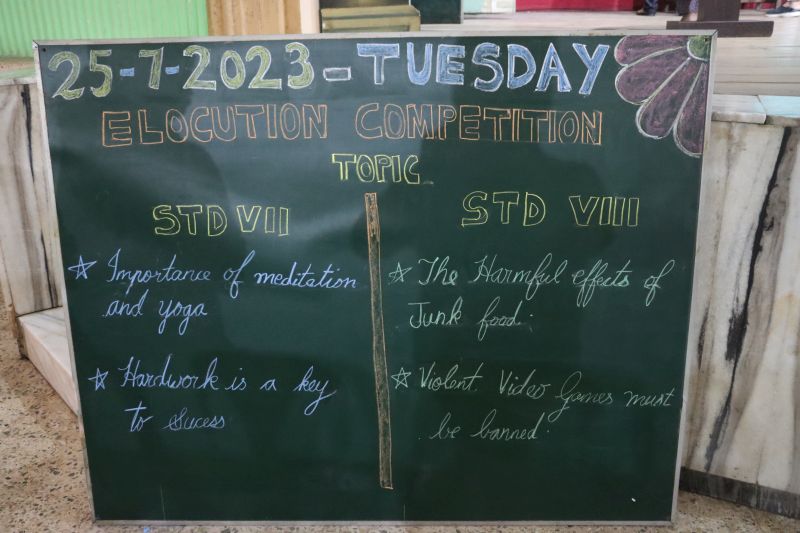 25-7-2023-TUESDAY
ELOCUTION COMPETITION
TOPIC
STD VII
☆ Importance of meditation
and yoga
☆ Hardwork is a key
to sucess
STD VIII
☆ The Harmful effects of
Junk food.
☆ Violent Video Games must
be banned.